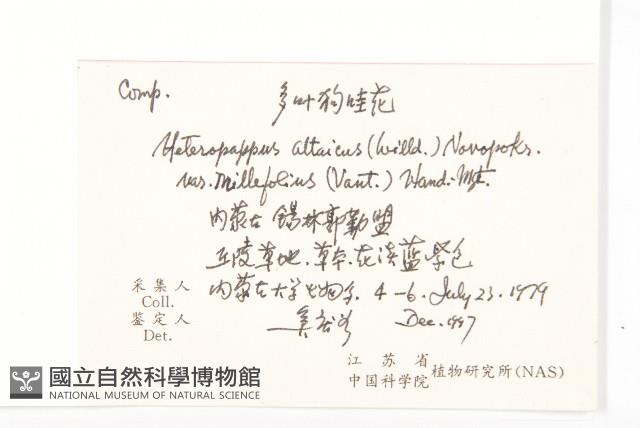 Comp. 多叶狗哇花
Heteropappus altaicus (Willd.) Novopokr.
var. millefolius (Vant.) Hand.-Mzt.
内蒙古 锡林郭勒盟
丘陵草地.草本.花淡蓝紫色
采集人 内蒙古大学生物系. 4-6. July 23. 1979
Coll.
鉴定人 Dec. 1997
Det.
江苏省
中国科学院 植物研究所(NAS)
國立自然科學博物館
NATIONAL MUSEUM OF NATURAL SCIENCE